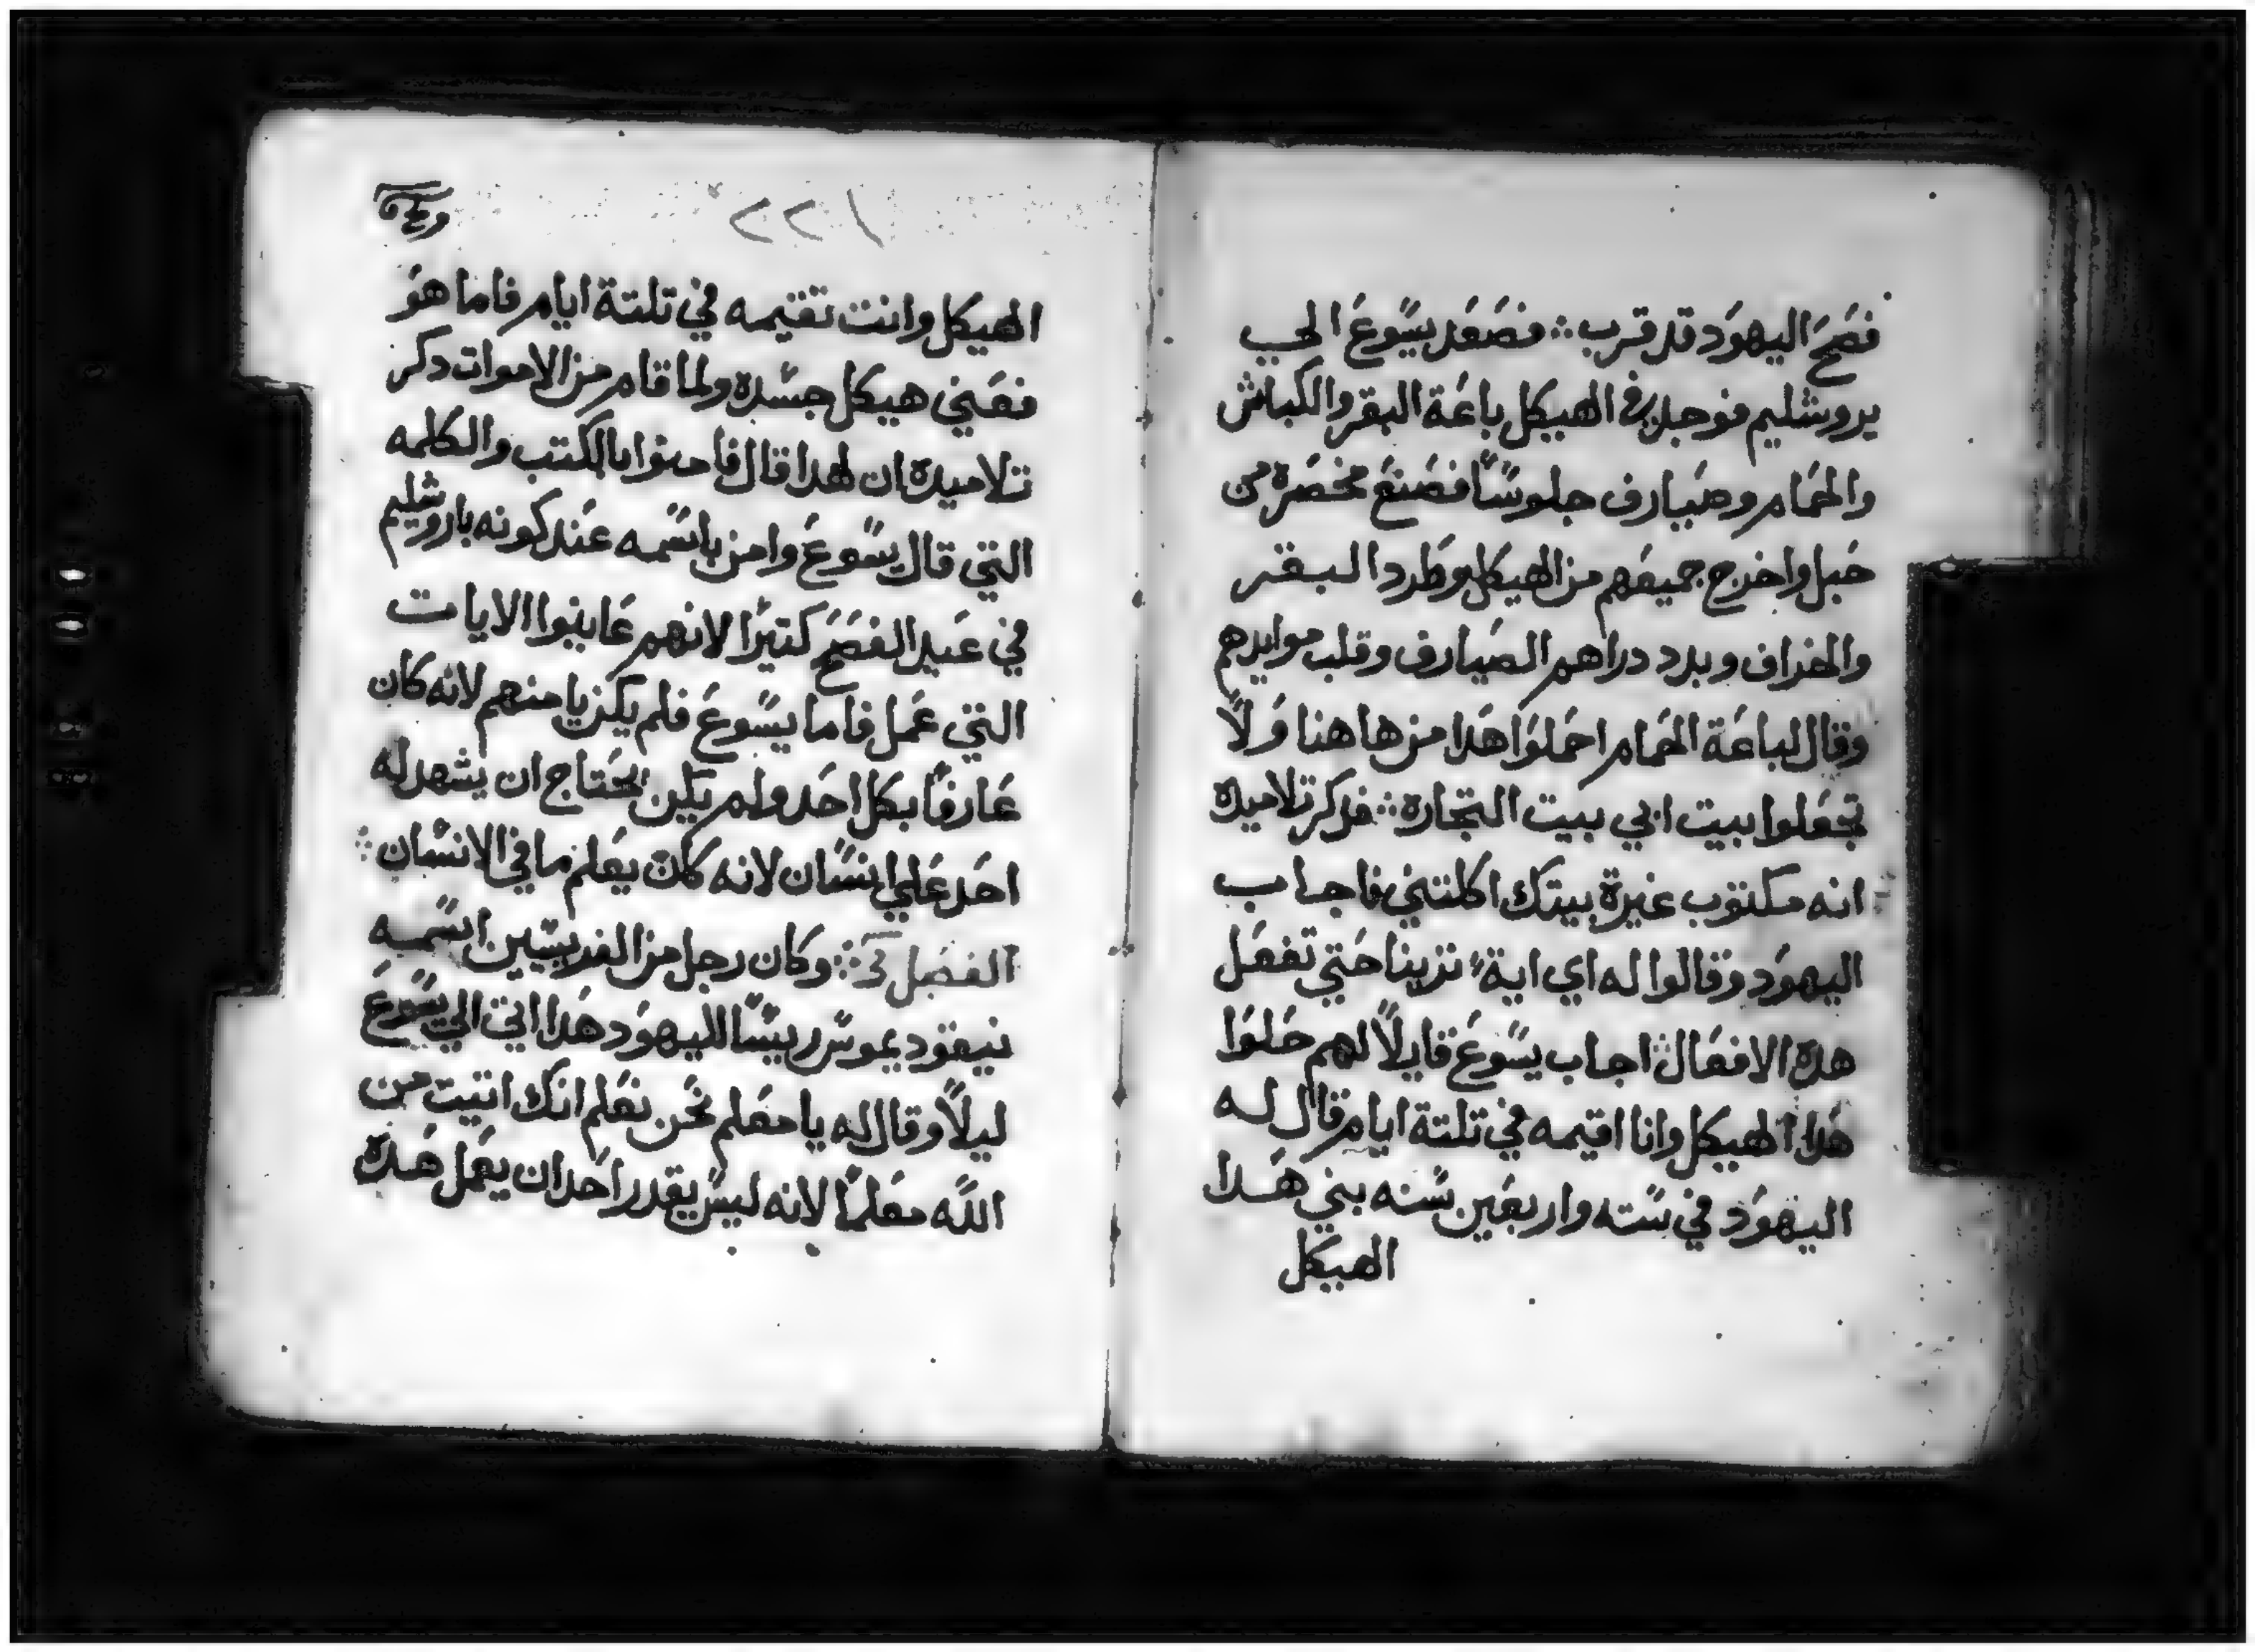 فصح اليهود قد قرب ؞ فصعد يسوع الي
يروشليم فوجد في الهيكل باعة البقر والكباش
والحمام وصيارف جلوسًا فصنع مخصرة من
حبل واخرج جميعهم من الهيكل وطرد البقر
والخراف وبدد دراهم الصيارف وقلب موايدهم
وقال لباعة الحمام احملوا هدا من هاهنا ولا
تجعلوا بيت ابي بيت التجارة ؞ فدكر تلاميده
انه مكتوب غيرة بيتك اكلتني فاجاب
اليهود وقالوا له اي اية تزينا حتي تفعل
هده الافعال ؞ اجاب يسوع قايلًا لهم حلوا
هدا الهيكل وانا اقيمه في تلتة ايام قال له
اليهود في سته واربعين سنه بني هدا
الهيكل
٢٢١
الهيكل وانت تقيمه في تلتة ايام فاما هو
فعني هيكل جسده ولما قام من الاموات دكر
تلاميده ان لهدا قال فامنوا بالكتب والكلمه
التي قال يسوع وامن باسمه عند كونه باروشليم
في عيد الفصح كتيرًا لانهم عاينوا الايات
التي عمل فاما يسوع فلم يكن يامنهم لانه كان
عارفًا بكل احد ولم يكن يحتاج ان يشهد له
احد علي انسان لانه كان يعلم ما في الانسان ؞
الفصل ؞ وكان رجل من الفريسيين اسمه
نيقوديموس رييسًا لليهود هدا اتي الي يسوع
ليلًا وقال له يا معلم نحن نعلم انك اتيت من
الله معلمًا لانه ليس يقدر احد ان يعمل هده